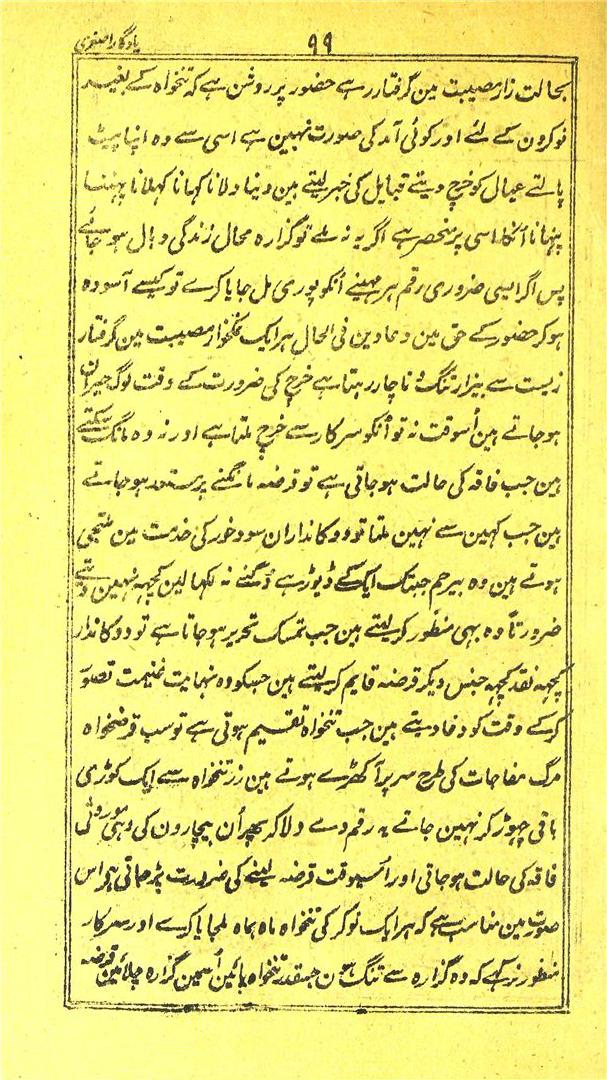 یادگار اصغری
۹۹
بحالت زار مصیبت مین گرفتار رہے حضور پر روشن ہے کہ تنخواہ کے بغیر
نوکرون کے لئے اور کوئی آمد کی صورت نہین ہے اسی سے وہ اپنا پیٹ
پالتے عیال کو خرچ دیتے قبایل کی خبر لیتے ہین دینا دلانا کہانا کہلانا پہننا
پہنانا اُنکا اسی پر منحصر ہے اگر یہ نہ ملے تو گذارہ محال زندگی وبال ہو جائے
پس اگر ایسی ضروری رقم ہر مہینے اُنکو پوری مل جایا کرے تو کیسے آسودہ
ہو کر حضور کے حق مین دعا دین فی الحال ہر ایک نمکخوار مصیبت مین گرفتار
زیست سے بیزار تنگ و ناچار رہتا ہے خرچ کی ضرورت کے وقت لوگ حیران
ہو جاتے ہین اُسوقت نہ تو اُنکو سرکار سے خرچ ملتا ہے اور نہ وہ مانگ سکتے
ہین جب فاقہ کی حالت ہو جاتی ہے تو قرضہ مانگنے پر مستعد ہو جاتے
ہین جب کہین سے نہین ملتا تو دوکانداران سود خور کی خدمت مین ملتجی
ہوتے ہین وہ بیرحم جبتک ایک کے ڈیوڑھے دُگنے نہ لکھا لین کچہہ نہین دیتے
ضرورتاً وہ بہی منظور کر لیتے ہین جب تمسک تحریر ہو جاتا ہے تو دوکاندار
کچہہ نقد کچہہ جنس دیکر قرضہ قایم کر لیتے ہین جسکو وہ نہایت غنیمت تصور
کر کے وقت کو دفا دیتے ہین جب تنخواہ تقسیم ہوتی ہے تو سب قرضخواہ
مرگ مفاجات کی طرح سر پر آ کھڑے ہوتے ہین زر تنخواہ سے ایک کوڑی
باقی چہوڑ کر نہین جاتے یہ رقم دے دلا کر پھر اُن بیچارون کی وہی موروثی
فاقہ کی حالت ہو جاتی اور اُسیوقت قرضہ لینے کی ضرورت پڑ جاتی ہے اس
صورت مین مناسب ہے کہ ہر ایک نوکر کی تنخواہ ماہ بماہ ملجایا کرے اور سرکار
منظور نہ کرے کہ وہ گذارہ سے تنگ ہون جسقدر تنخواہ پائین اُسمین گزارہ چلائین قرضہ